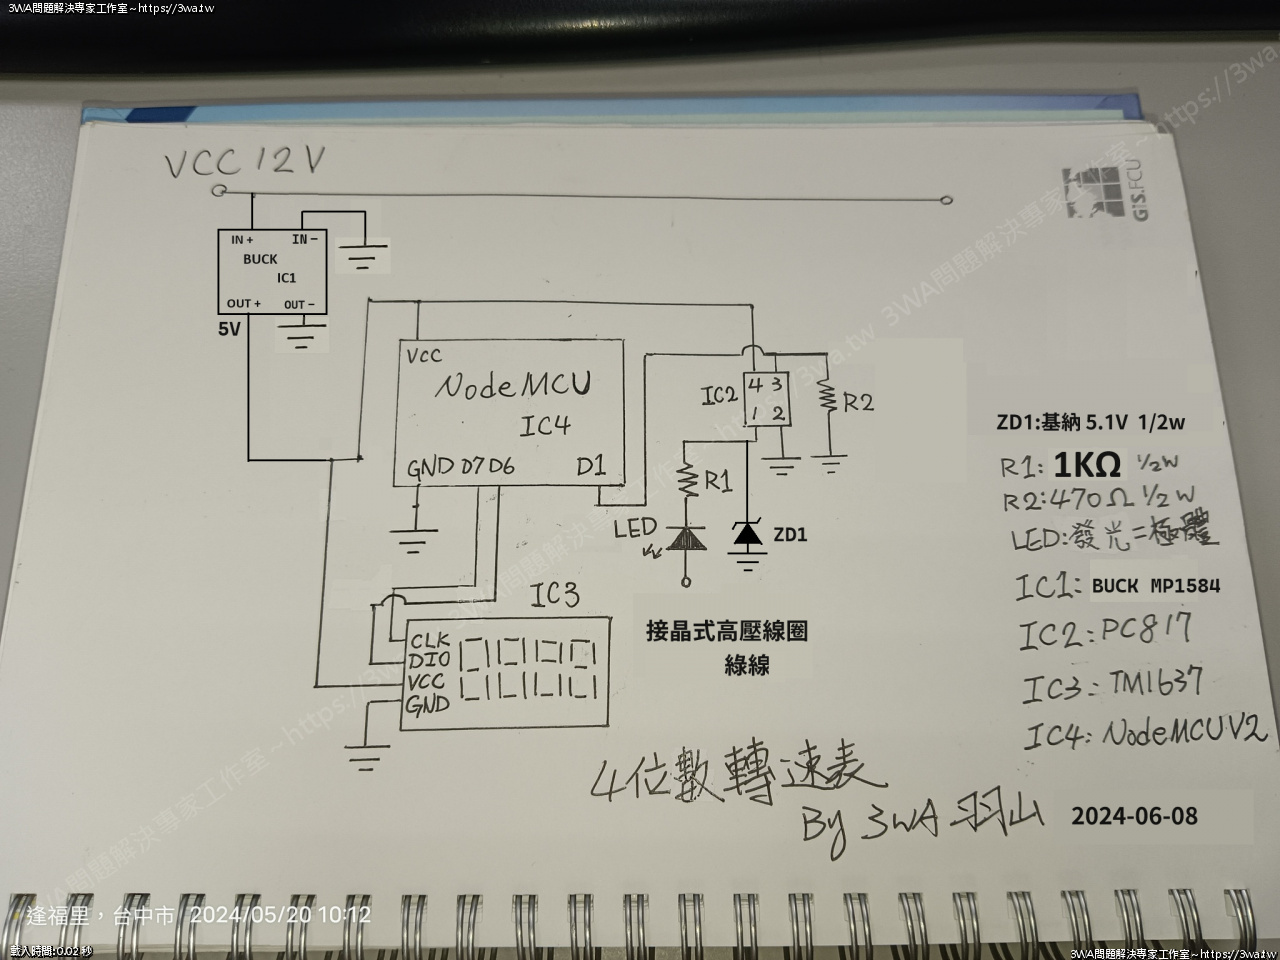 3WA問題解決專家工作室~https://3wa.tw
https://3wa.tw
3WA問題解決專家工作室~https://3wa.tw
VCC 12V
GIS.FCU
IN + IN -
BUCK
IC1
OUT + OUT -
5V
VCC
NodeMCU
IC4
GND D7 D6 D1
IC2
4 3
1 2
R2
R1
LED
ZD1
IC3
CLK
DIO
VCC
GND
接晶式高壓線圈
綠線
ZD1:基納 5.1V 1/2w
R1: 1KΩ 1/2W
R2:470Ω 1/2W
LED:發光二極體
IC1: BUCK MP1584
IC2:PC817
IC3:TM1637
IC4:NodeMCU V2
4位數轉速表
By 3WA 羽山 2024-06-08
3WA問題解決專家工作室~https://3wa.tw
逢福里,台中市 2024/05/20 10:12
載入時間:0.02 秒
3WA問題解決專家工作室~https://3wa.tw